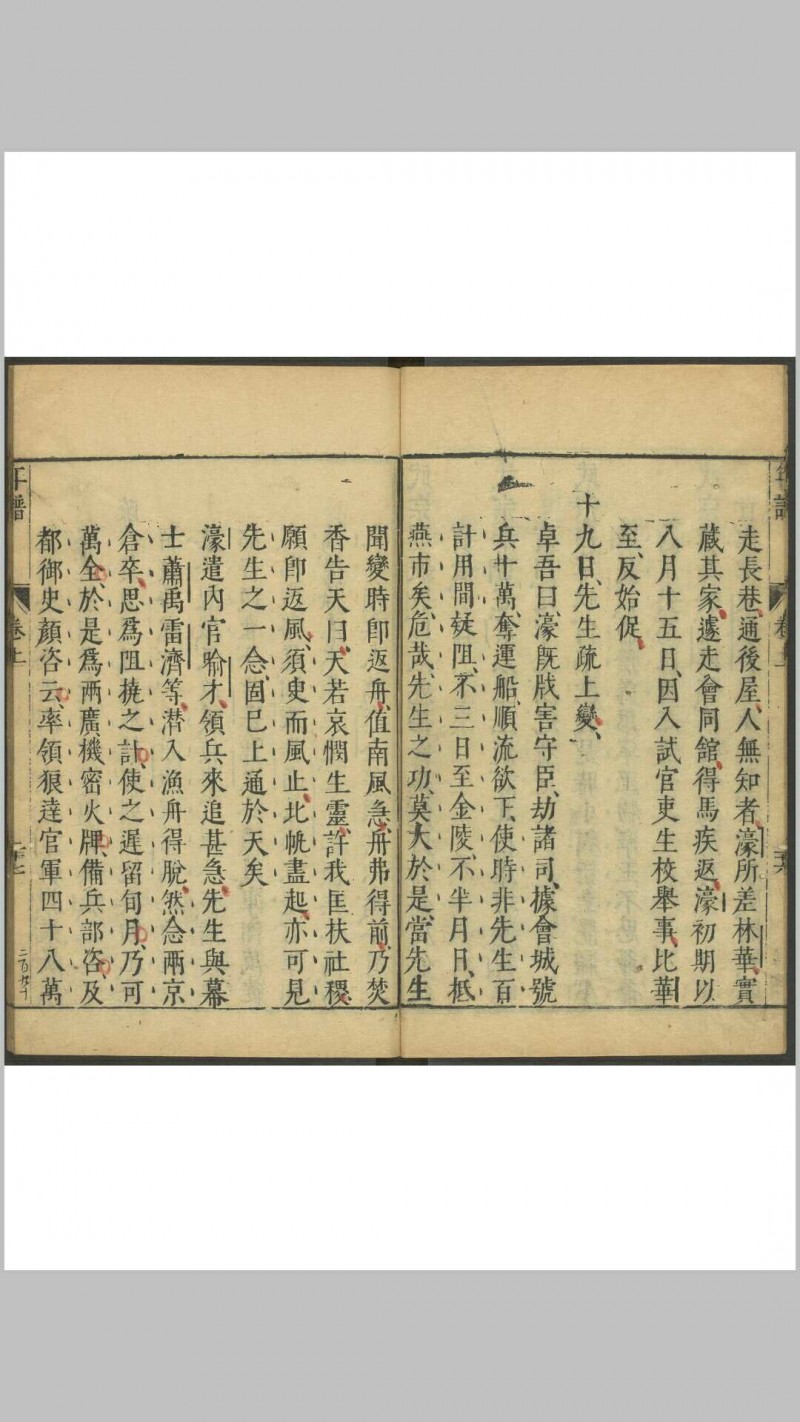 年譜
卷上
走長巷、通後屋、人無知者、濠所差林華、實
蔵其家、遽走會同舘、得馬疾返、濠初期以
八月十五日、因入試官吏生校舉事、比華
至、反始促、
十九日、先生疏上變、
卓吾曰、濠旣戕害守臣、劫諸司、據會城、號
兵十萬、奪運船、順流欲下、使時非先生百
計用間疑阻、不三日至金陵、不半月日、抵
燕市矣、危哉、先生之功、莫大於是、當先生
聞變時、卽返舟、值南風急、舟弗得前、乃焚
香告天曰、天若哀憫生靈、許我匡扶社稷、
願卽返風、須史而風止、北帆盡起、亦可見
先生之一念、固已上通於天矣
濠遣內官喻才、領兵來追甚急、先生與幕
士蕭禹雷濟等、潛入漁舟得脫、然念兩京
倉卒、思爲阻撓之計、使之遲留旬月、乃可
萬全、於是爲兩廣機密火牌、備兵部咨、及
都御史顏咨云、率領狼達官軍四十八萬
年譜
卷上